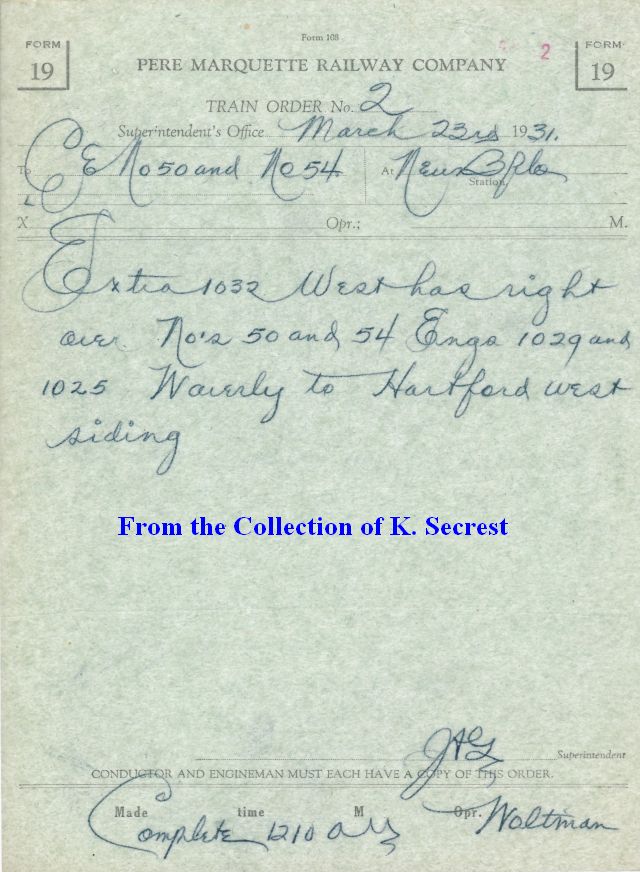 Form 108
2
FORM 19
FORM 19
PERE MARQUETTE RAILWAY COMPANY
TRAIN ORDER No. 2
Superintendent's Office March 23rd 1931.
To C E No 50 and No 54 At New Bflo Station
X Opr.; M.
Extra 1032 West has right
over No's 50 and 54 Engs 1029 and
1025 Waverly to Hartford west
siding
From the Collection of K. Secrest
Superintendent
CONDUCTOR AND ENGINEMAN MUST EACH HAVE A COPY OF THIS ORDER.
Made time M Opr. Woltman
Complete 1210 AM